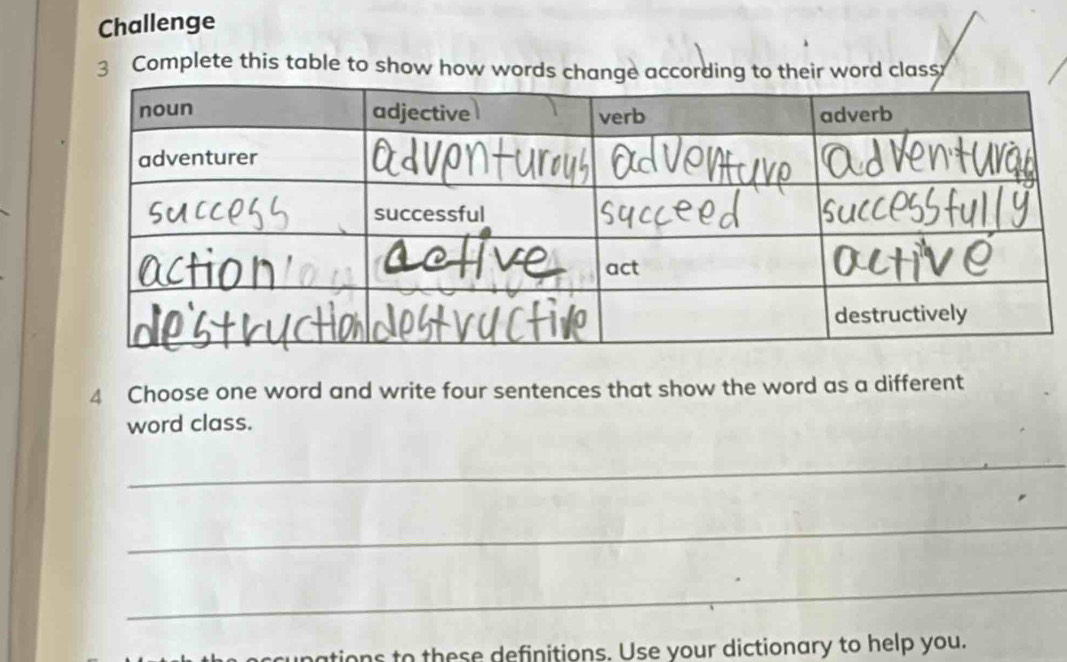 Challenge
3 Complete this table to show how words change according to their word class:
noun adjective verb adverb
adventurer adventurous adventure
success successful succeed successfully
action active act active
destruction destructive destructively
4 Choose one word and write four sentences that show the word as a different
word class.
to these definitions. Use your dictionary to help you.